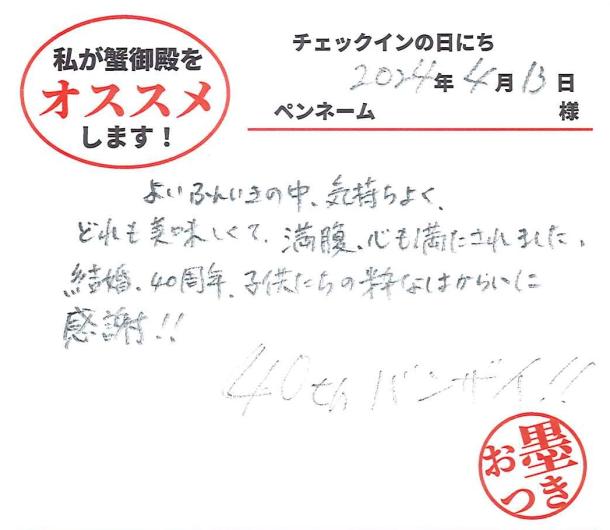 私が蟹御殿を
オススメ
します！
チェックインの日にち
2024年4月13日
ペンネーム 様
よいふんいきの中、気持ちよく、
どれも美味しくて、満腹、心も満たされました。
結婚、40周年、子供たちの粋なはからいに
感謝!!
40th バンザイ!!
お墨
つき